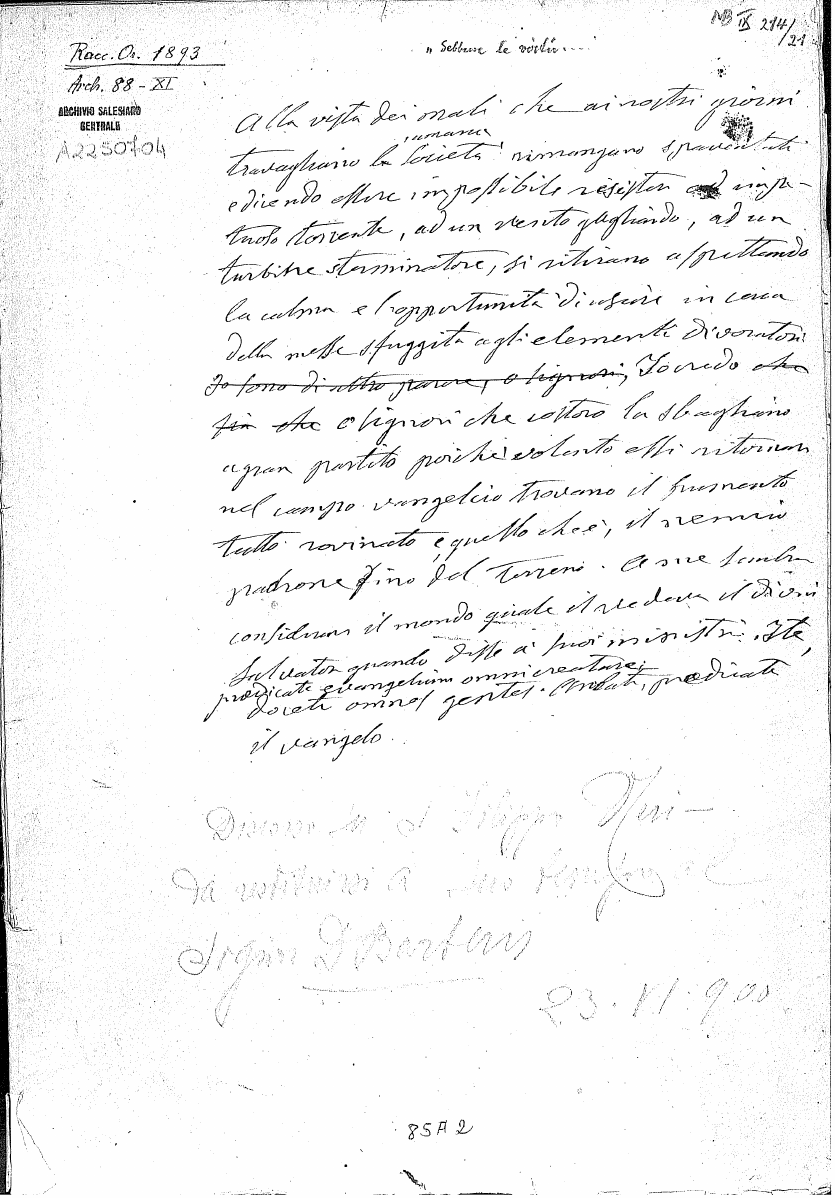 NB IX 214/21
Racc. Or. 1893
„ Sebbene le virtù....
Arch. 88 - XI
ARCHIVIO SALESIANO
CENTRALE
A2250704
Alla vista dei mali che ai nostri giorni
umana
travagliano la società rimangono spaventati
e dicendo essere impossibile resistere ad impe-
tuoso torrente, ad un vento gagliardo, ad un
turbine sterminatore, si ritirano aspettando
la calma e l'opportunità di uscire in cerca
della messe sfuggita agli elementi divoratori
Io sono di altro parere, o signori, Io credo che
fin che o signori che costoro la sbagliano
a gran partito poichè volento essi ritornare
nel campo vangelico trovano il frumento
tutto rovinato e, quello che è, il nemico
padrone fino del terreno. A me sembra
considerare il mondo quale il vedeva il divin
Salvatore quando disse a' suoi ministri: Ite,
praedicate evangelium omni creaturae;
docete omnes gentes. Andate, predicate
il vangelo.
Discorso di S Filippo Neri -
da restituirsi a suo tempo al
Signor D Barberis
23 . VI . 900
85A2